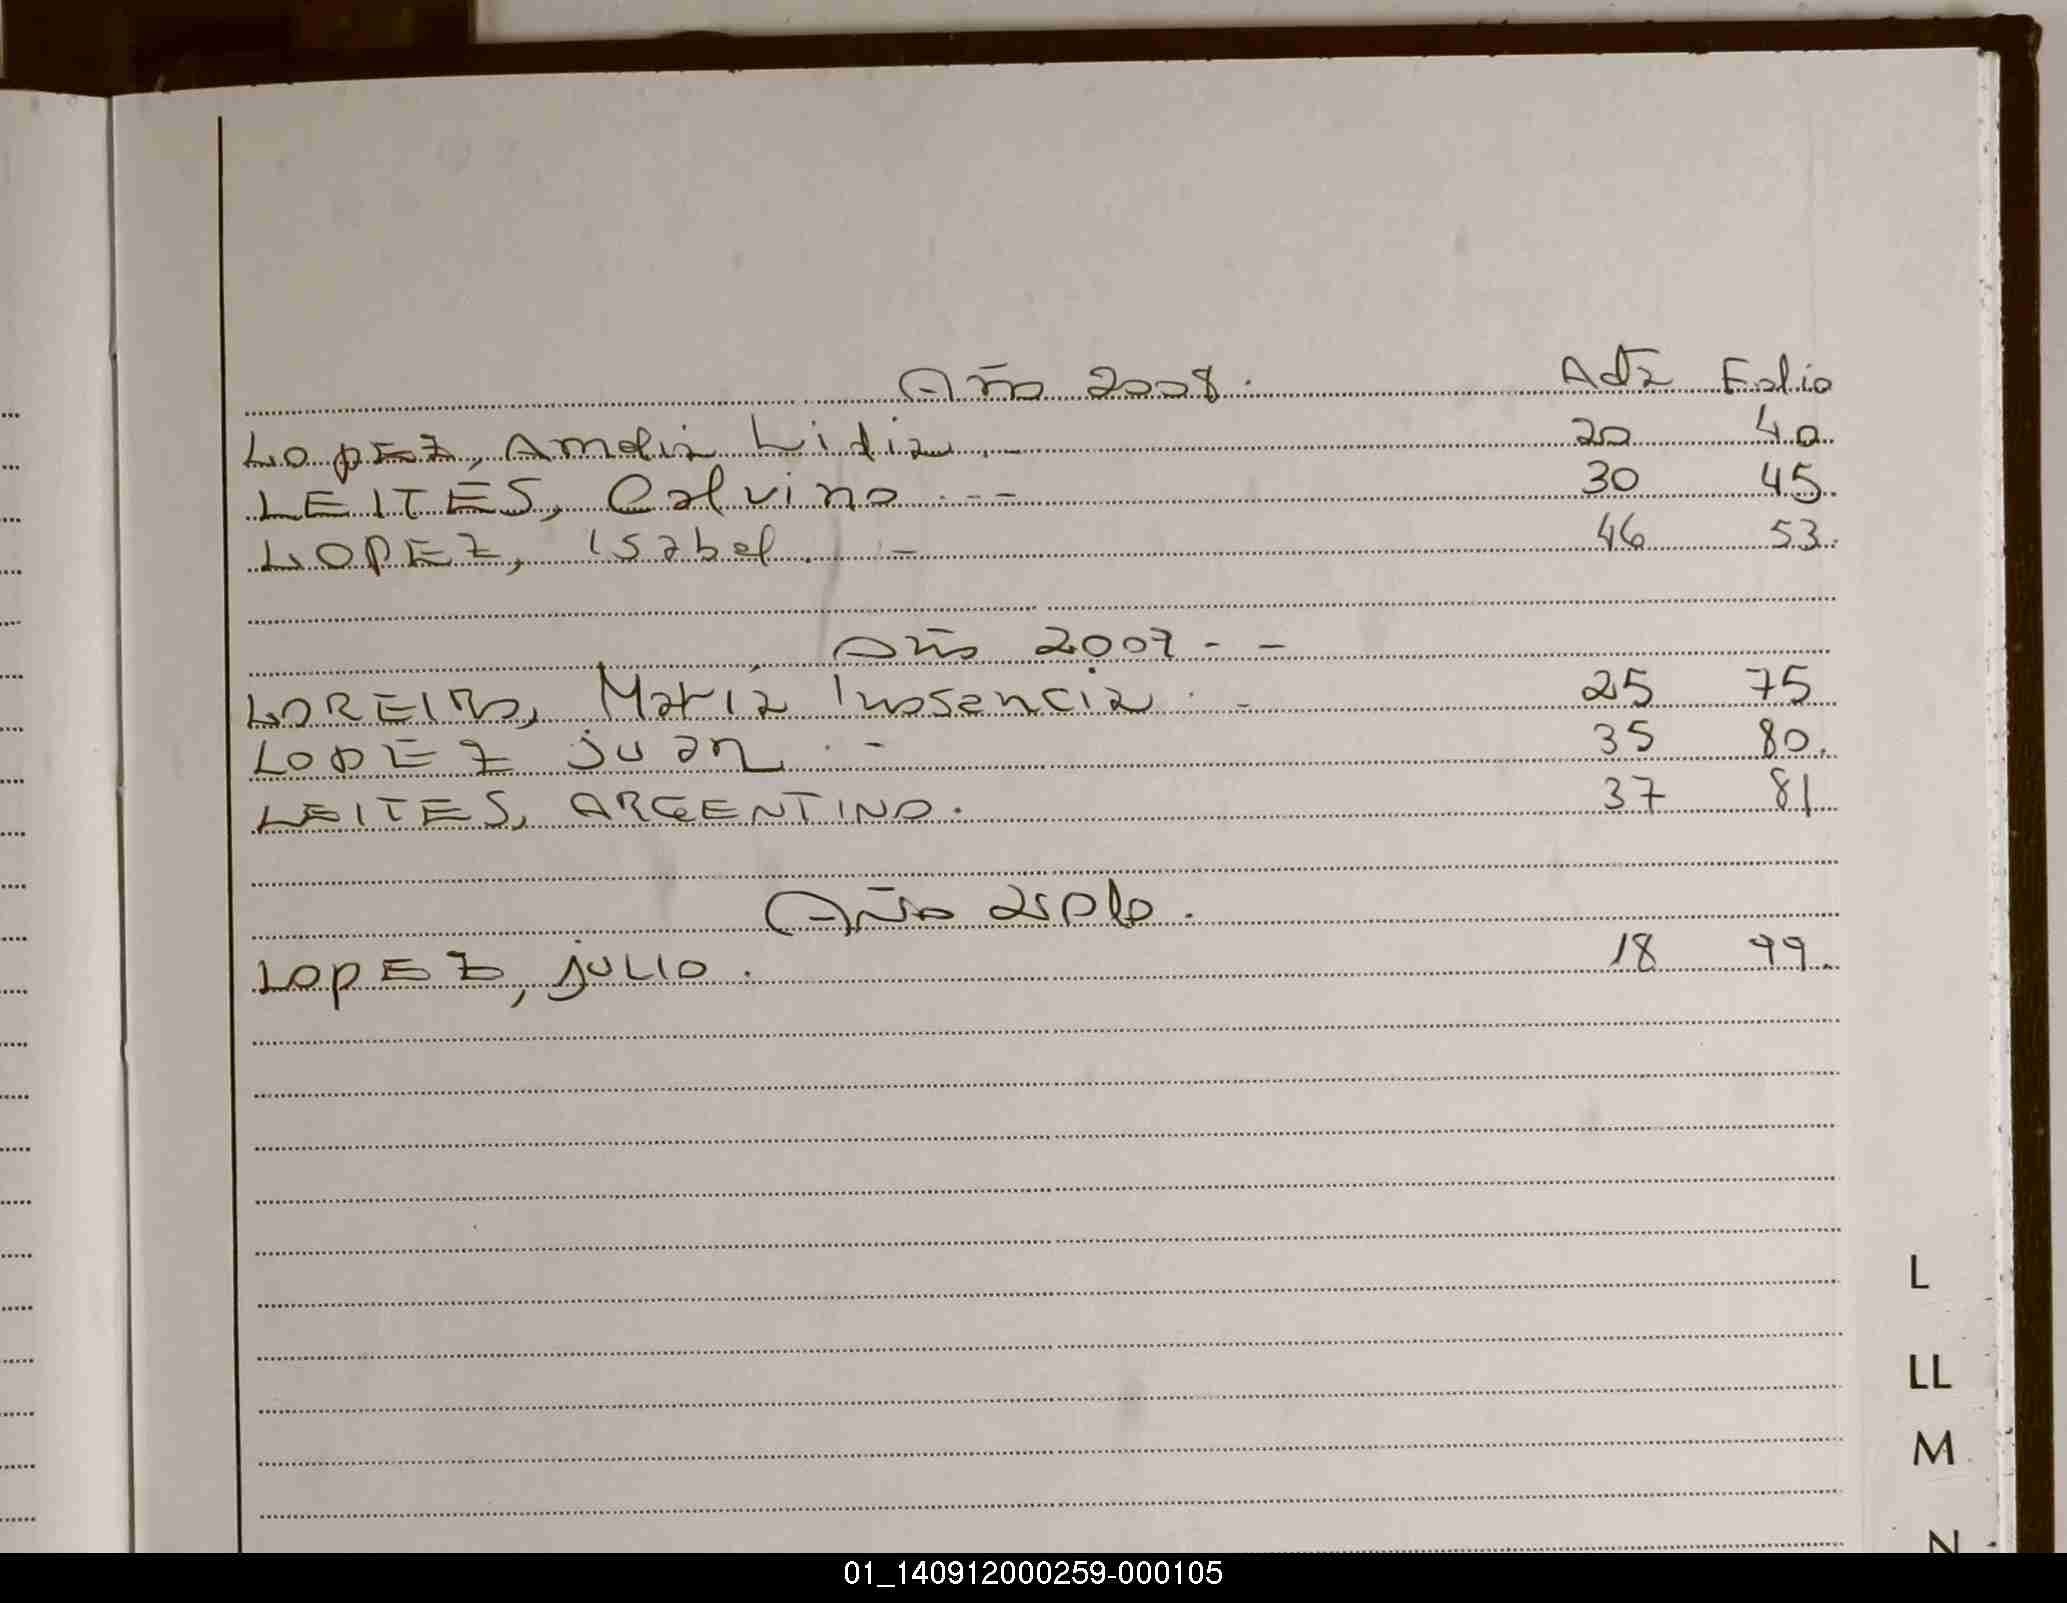 Año 2008. Acta Folio
LOPEZ, Amelia Lidia .- 20 40.
LEITES, Calvino .-- 30 45.
LOPEZ, Isabel. - 46 53.
Año 2009 - -
LOREIRO, María Inosencia . - 25 75
LOPEZ Juan . - 35 80.
LEITES, ARGENTINO. 37 81
Año 2010.
LOPEZ, JULIO. 18 99.
L
LL
M
N
01_140912000259-000105